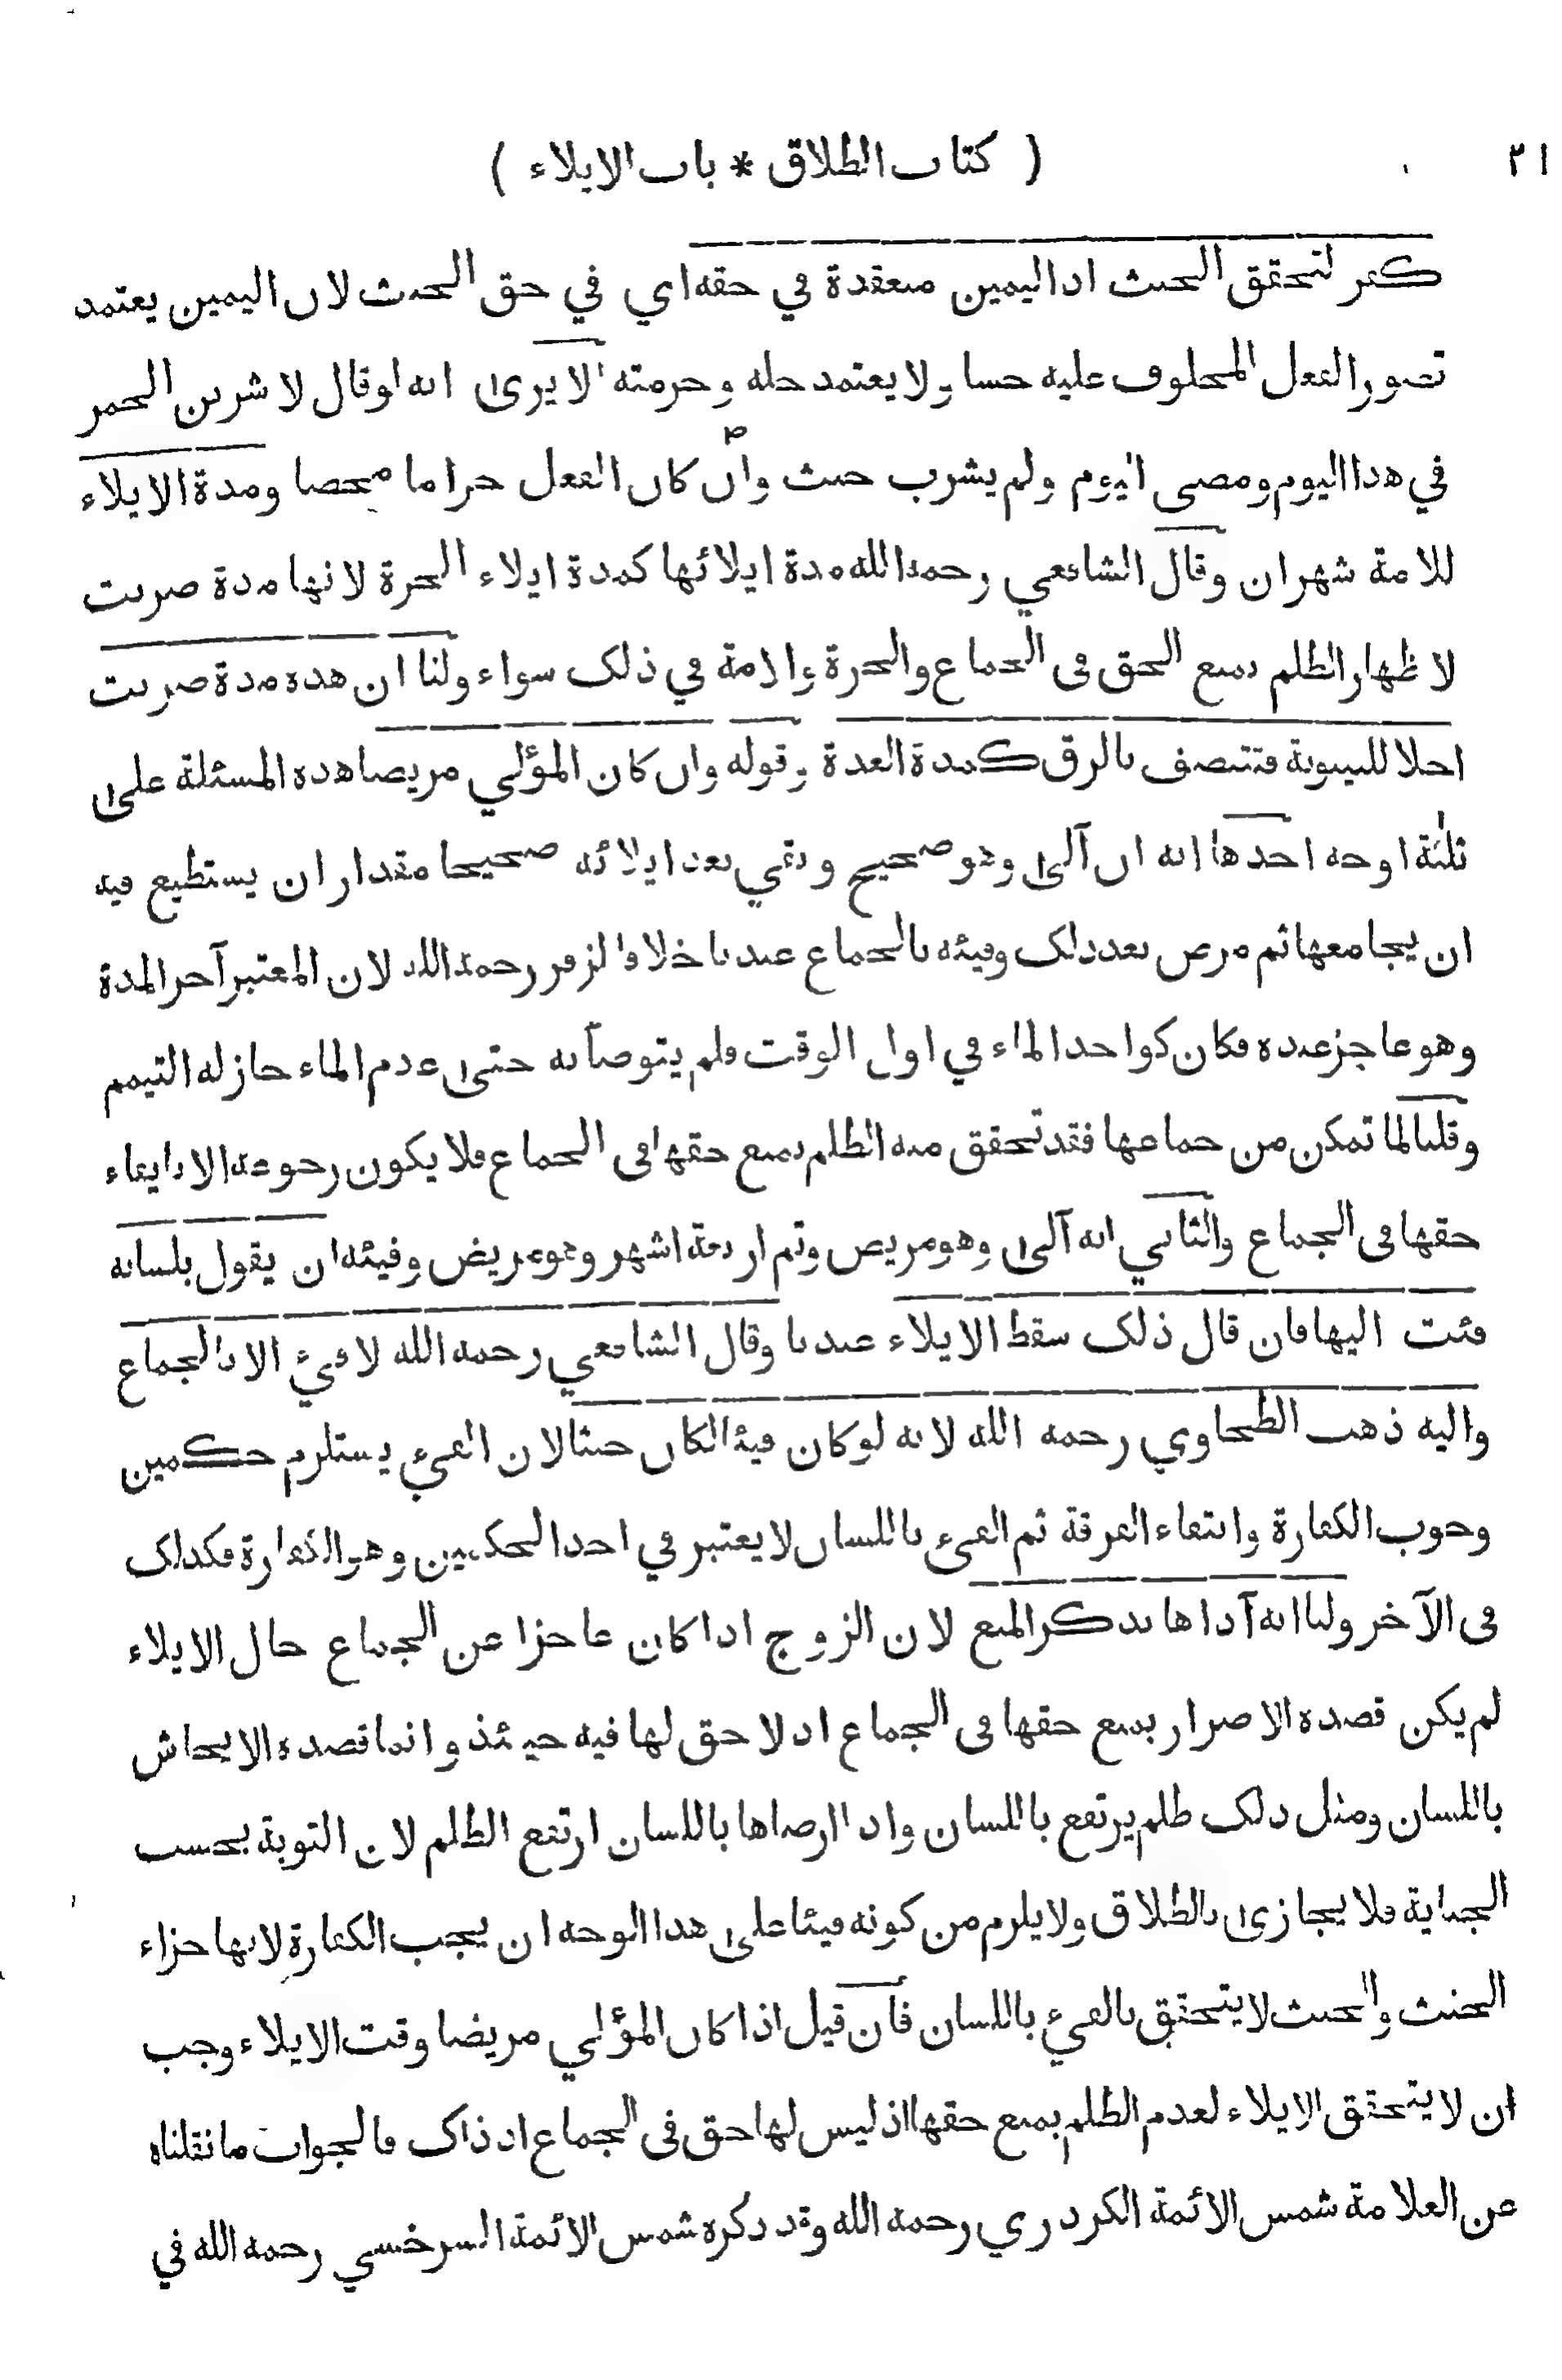 ( كتاب الطلاق * باب الايلاء ) ٢١
كفر لتحقق الحنث اذ اليمين منعقدة في حقه اي في حق الحنث لان اليمين يعتمد
تصور الفعل المحلوف عليه حسا ولا يعتمد حله وحرمته الا يرى انه لو قال لا شربن الخمر
في هذا اليوم ومضى اليوم ولم يشرب حنث وان كان الفعل حراما محضا ومدة الايلاء
للامة شهران وقال الشافعي رحمه الله مدة ايلائها كمدة ايلاء الحرة لانها مدة ضربت
لاظهار الظلم بمنع الحق في الجماع والحرة والامة في ذلك سواء ولنا ان هذه مدة ضربت
اجلا للبينونة فتتنصف بالرق كمدة العدة وقوله وان كان المؤلي مريضا هذه المسئلة على
ثلثة اوجه احدها انه ان آلى وهو صحيح وبقي بعد ايلائه صحيحا مقدار ان يستطيع فيه
ان يجامعها ثم مرض بعد ذلك وفيئه بالجماع عندنا خلافا لزفر رحمه الله لان المعتبر آخر المدة
وهو عاجز عنده فكان كواجد الماء في اول الوقت فلم يتوضأ به حتى عدم الماء جاز له التيمم
وقلنا لما تمكن من جماعها فقد تحقق منه الظلم بمنع حقها في الجماع فلا يكون رجوعه الا بايفاء
حقها في الجماع والثاني انه آلى وهو مريض وتم اربعة اشهر وهو مريض وفيئه ان يقول بلسانه
فئت اليها فان قال ذلك سقط الايلاء عندنا وقال الشافعي رحمه الله لا فيء الا بالجماع
واليه ذهب الطحاوي رحمه الله لانه لو كان فيئا لكان حنثا لان الفيء يستلزم حكمين
وجوب الكفارة وانتفاء الفرقة ثم الفيء باللسان لا يعتبر في احد الحكمين وهو الكفارة فكذلك
في الآخر ولنا انه آذاها بذكر المنع لان الزوج اذا كان عاجزا عن الجماع حال الايلاء
لم يكن قصده الاضرار بمنع حقها في الجماع اذ لا حق لها فيه حينئذ وانما قصده الايحاش
باللسان ومثل ذلك ظلم يرتفع باللسان واذا ارضاها باللسان ارتفع الظلم لان التوبة بحسب
الجناية فلا يجازى بالطلاق ولا يلزم من كونه فيئا على هذا الوجه ان يجب الكفارة لانها جزاء
الحنث والحنث لا يتحقق بالفيء باللسان فان قيل اذا كان المؤلي مريضا وقت الايلاء وجب
ان لا يتحقق الايلاء لعدم الظلم بمنع حقها اذ ليس لها حق في الجماع اذ ذاك فالجواب ما نقلناه
عن العلامة شمس الائمة الكردري رحمه الله وقد ذكره شمس الائمة السرخسي رحمه الله في